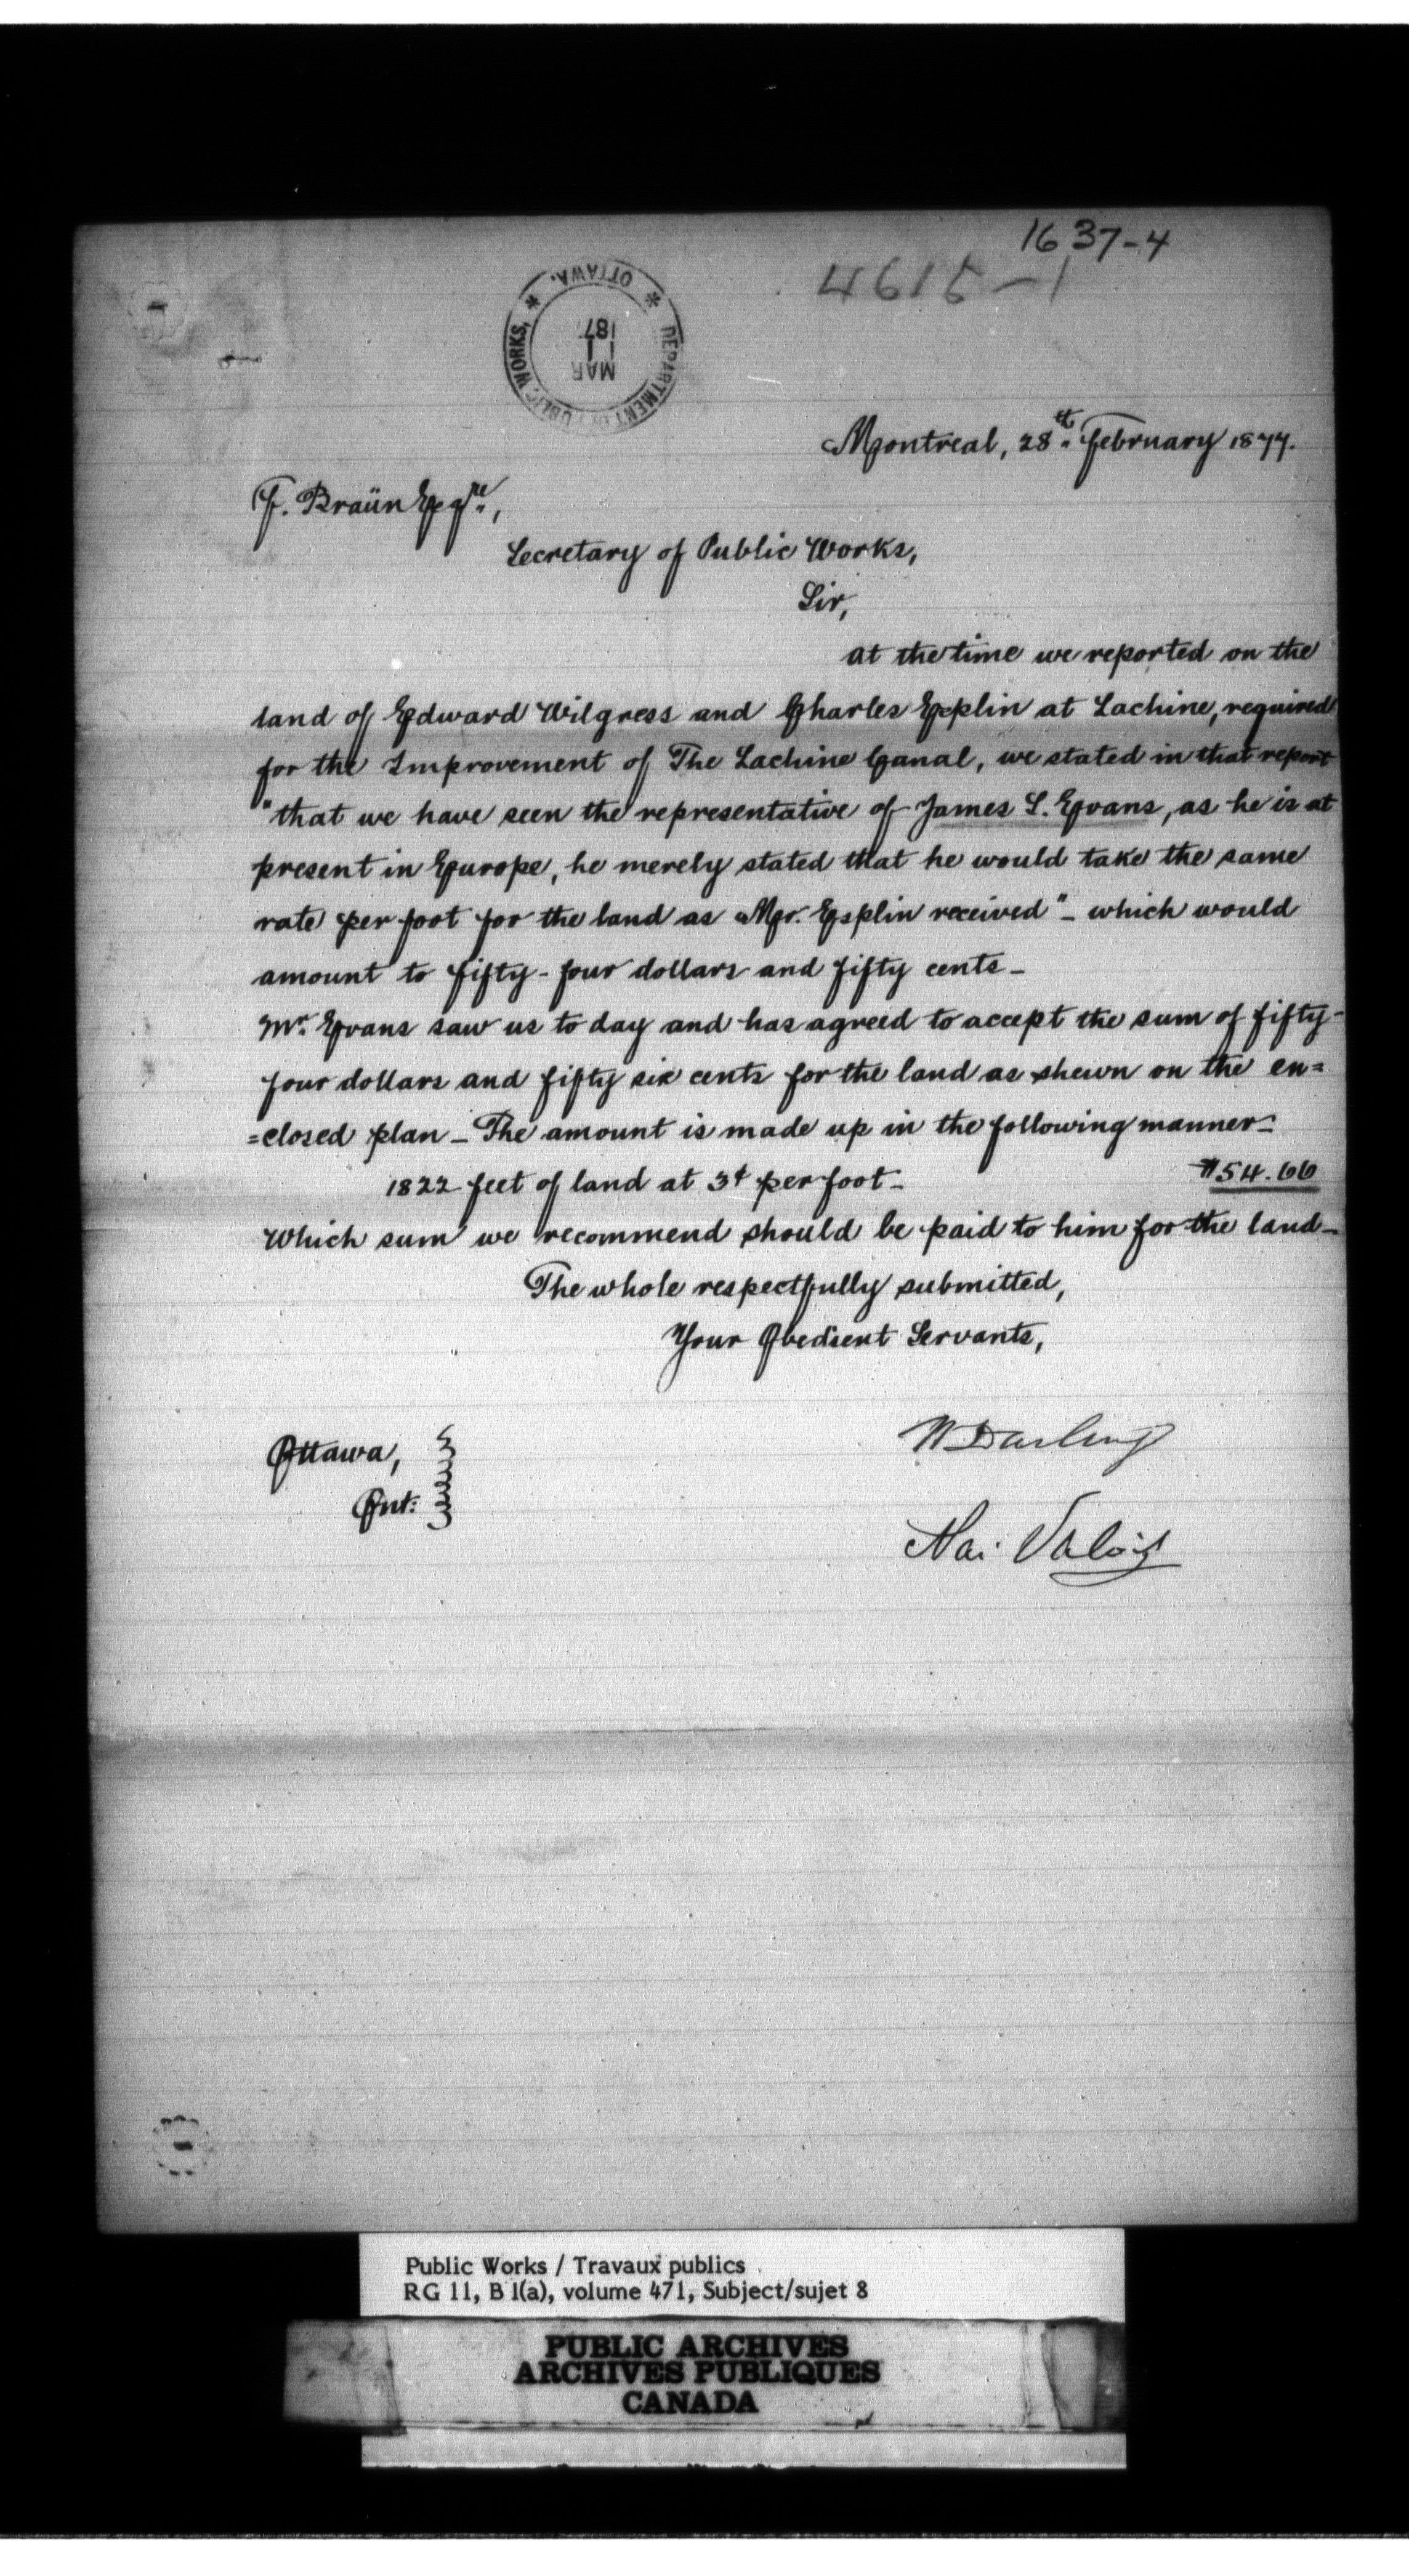 1637-4
4615-1
DEPARTMENT OF PUBLIC WORKS,
* OTTAWA. *
MAR
1
187
Montreal, 28th. February 1877.
F. Braün Esqre.,
Secretary of Public Works,
Sir,
at the time we reported on the
land of Edward Wilgress and Charles Esplin at Lachine, required
for the Improvement of The Lachine Canal, we stated in that report
"that we have seen the representative of James S. Evans, as he is at
present in Europe, he merely stated that he would take the same
rate per foot for the land as Mr. Esplin received" – which would
amount to fifty-four dollars and fifty cents –
Mr. Evans saw us to day and has agreed to accept the sum of fifty-
four dollars and fifty six cents for the land as shewn on the en=
=closed plan – The amount is made up in the following manner:
1822 feet of land at 3¢ per foot – $54.66
Which sum we recommend should be paid to him for the land –
The whole respectfully submitted,
Your Obedient Servants,
Ottawa,
Ont:
W Darling
Nar. Valois
Public Works / Travaux publics
RG 11, B 1(a), volume 471, Subject/sujet 8
PUBLIC ARCHIVES
ARCHIVES PUBLIQUES
CANADA